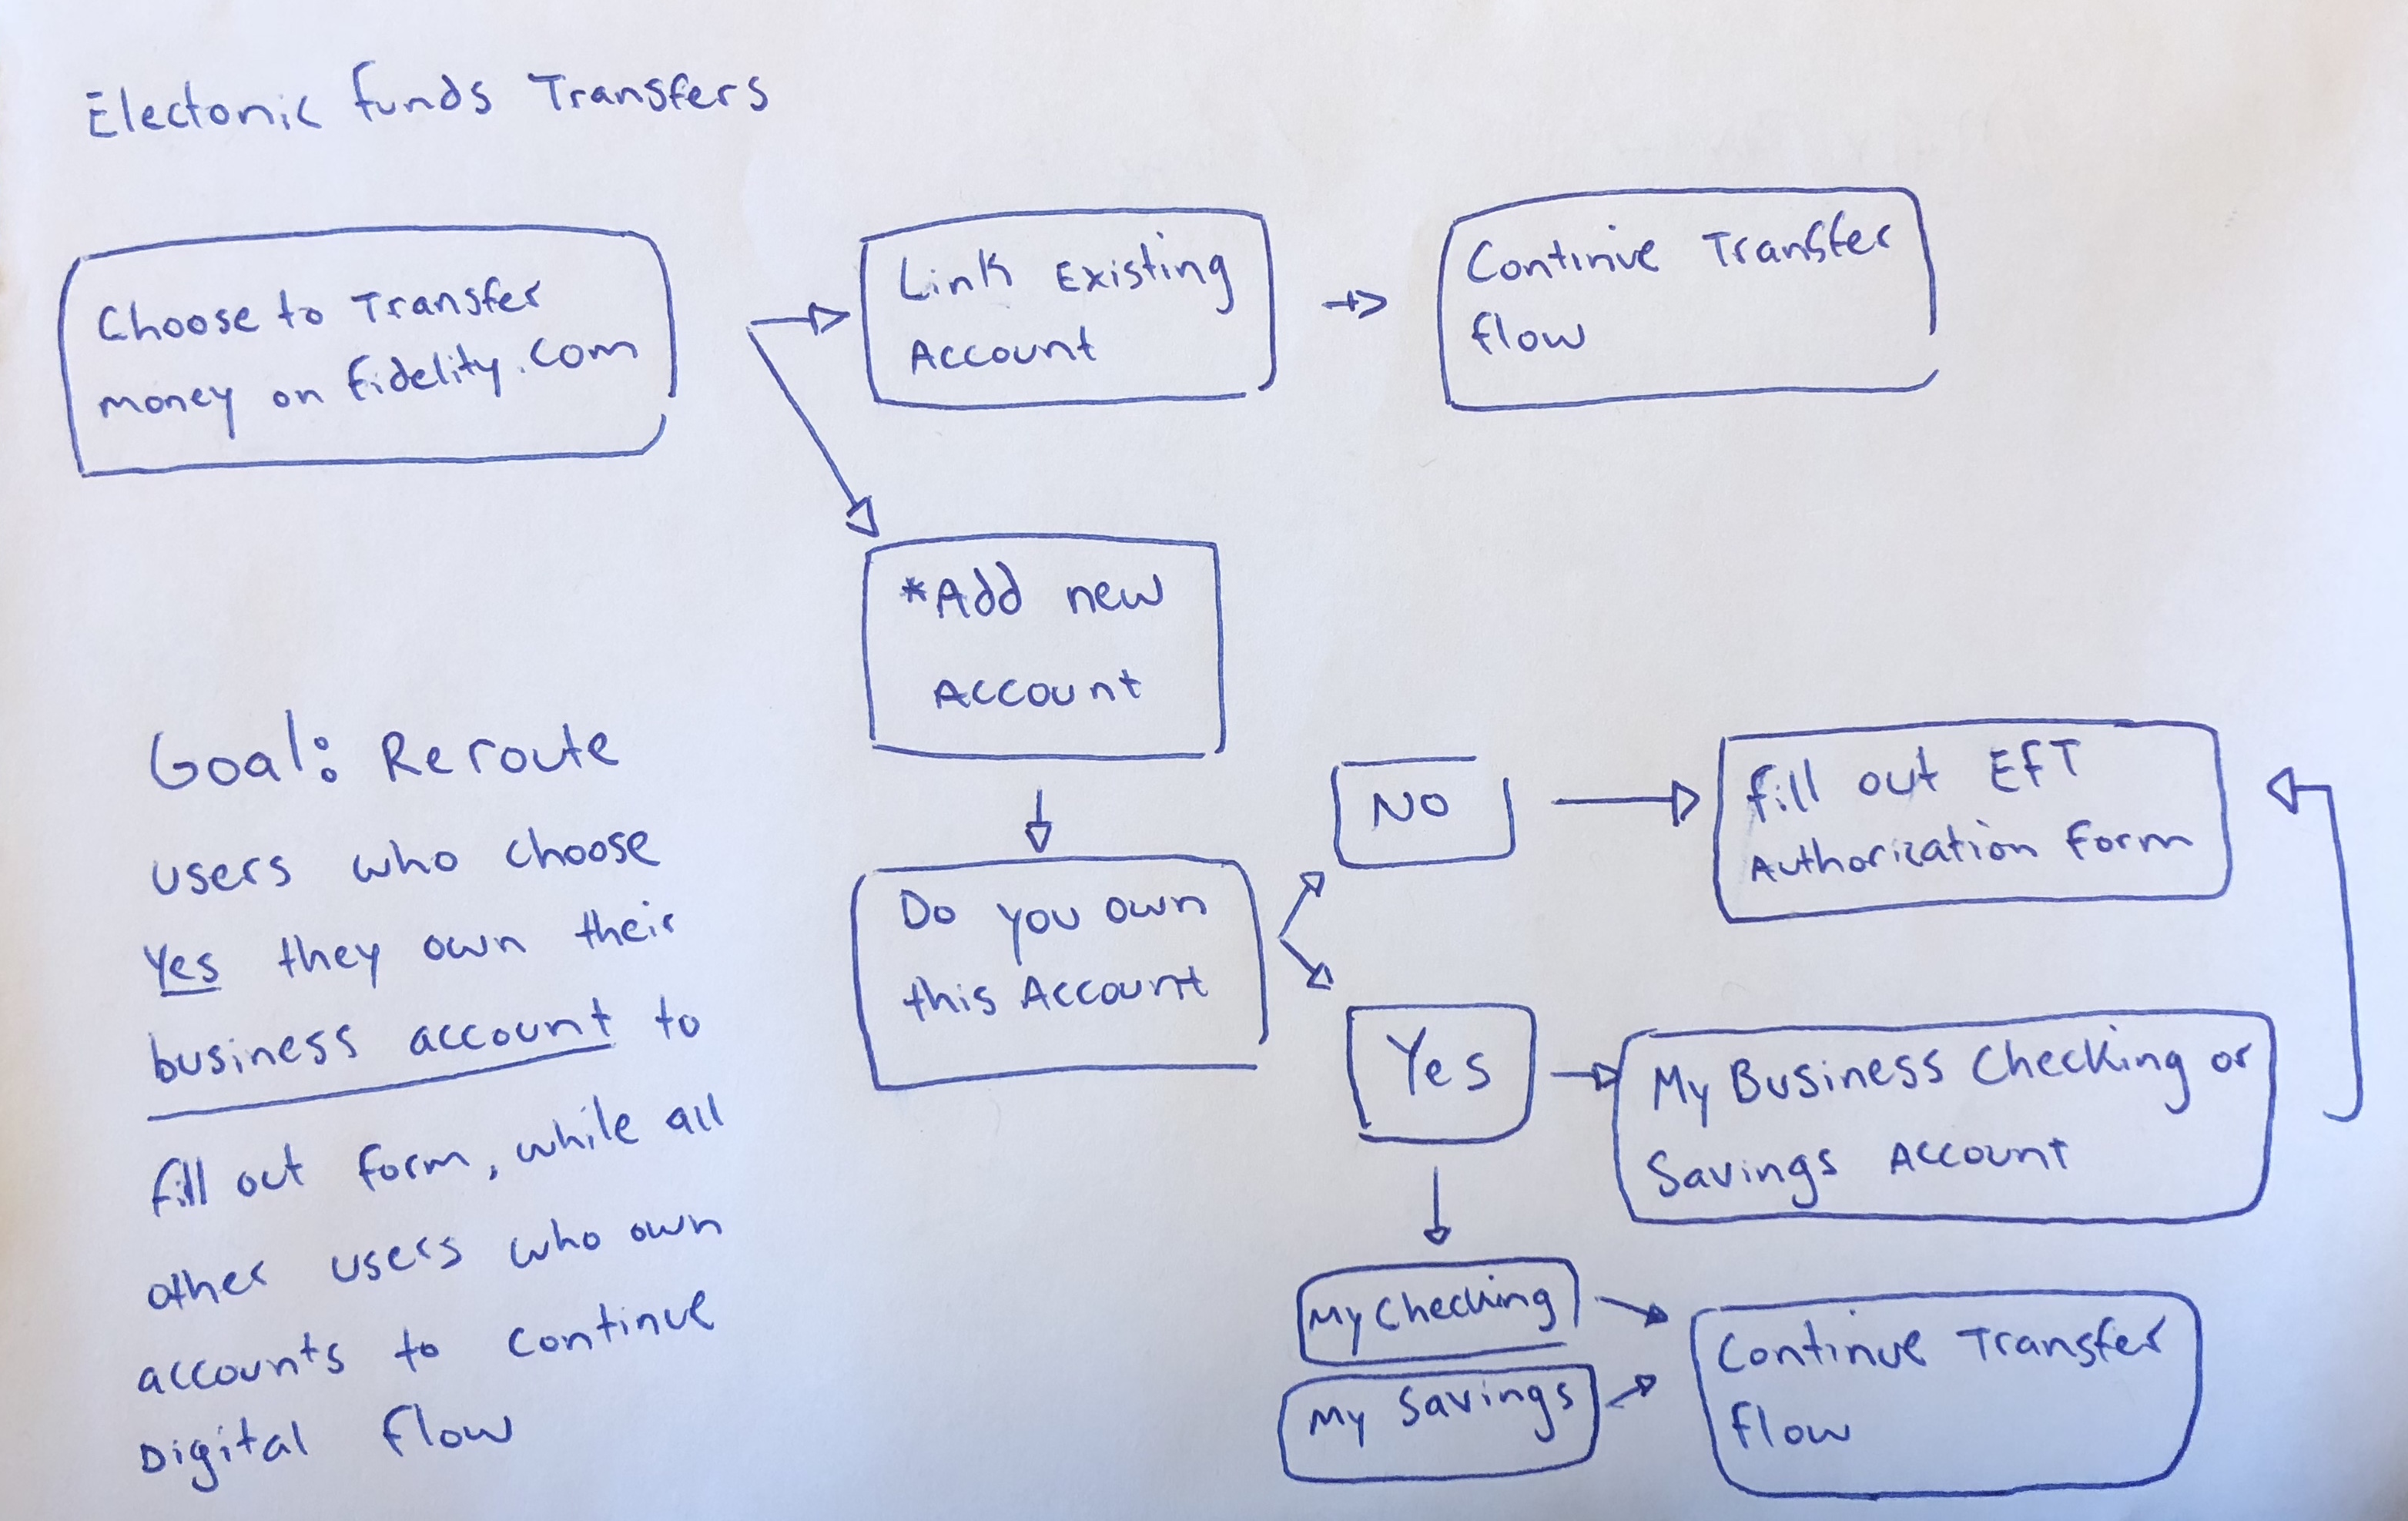 Electonic funds Transfers
Choose to Transfer
money on fidelity.com
Link Existing
Account
Continue Transfer
flow
*Add new
Account
Do you own
this Account
NO
fill out EFT
Authorization form
Yes
My Business Checking or
Savings Account
My Checking
My Savings
Continue Transfer
flow
Goal: Reroute
users who choose
Yes they own their
business account to
fill out form, while all
other users who own
accounts to continue
Digital flow